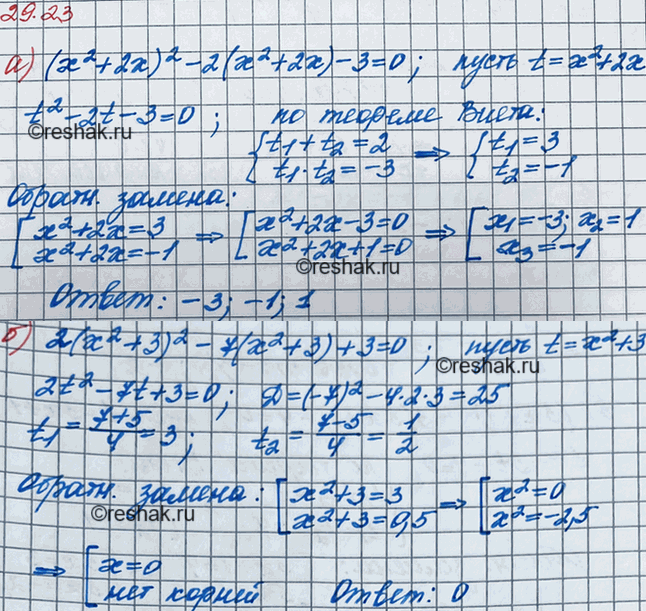 29.23
а) (x²+2x)²-2(x²+2x)-3=0; пусть t=x²+2x
t²-2t-3=0; по теореме Виета:
©reshak.ru
{t₁+t₂=2 ⇒ {t₁=3
t₁·t₂=-3 t₂=-1
Обратн. замена:
[x²+2x=3 ⇒ [x²+2x-3=0 ⇒ [x₁=-3; x₂=1
x²+2x=-1 x²+2x+1=0 x₃=-1
©reshak.ru
Ответ: -3; -1; 1
б) 2(x²+3)²-7(x²+3)+3=0; пусть t=x²+3
©reshak.ru
2t²-7t+3=0; D=(-7)²-4·2·3=25
t₁=(7+5)/4=3; t₂=(7-5)/4=1/2
Обратн. замена: [x²+3=3 ⇒ [x²=0
x²+3=0,5 x²=-2,5
©reshak.ru
⇒ [x=0
нет корней Ответ: 0